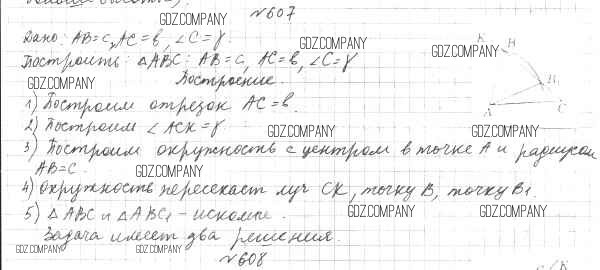 №607
GDZ.COMPANY
Дано: AB=c, AC=b, ∠C=γ.
GDZ.COMPANY GDZ.COMPANY
Построить: △ABC: AB=c, AC=b, ∠C=γ
GDZ.COMPANY
Построение.
K H
B1
A C
1) Построим отрезок AC=b.
2) Построим ∠ACK=γ.
GDZ.COMPANY GDZ.COMPANY
3) Построим окружность с центром в точке A и радиусом
AB=C.
GDZ.COMPANY
4) Окружность пересекает луч CK, точку B, точку B1.
5) △ABC и △AB1C - искомые.
GDZ.COMPANY GDZ.COMPANY
Задача имеет два решения.
GDZ.COMPANY GDZ.COMPANY
№608